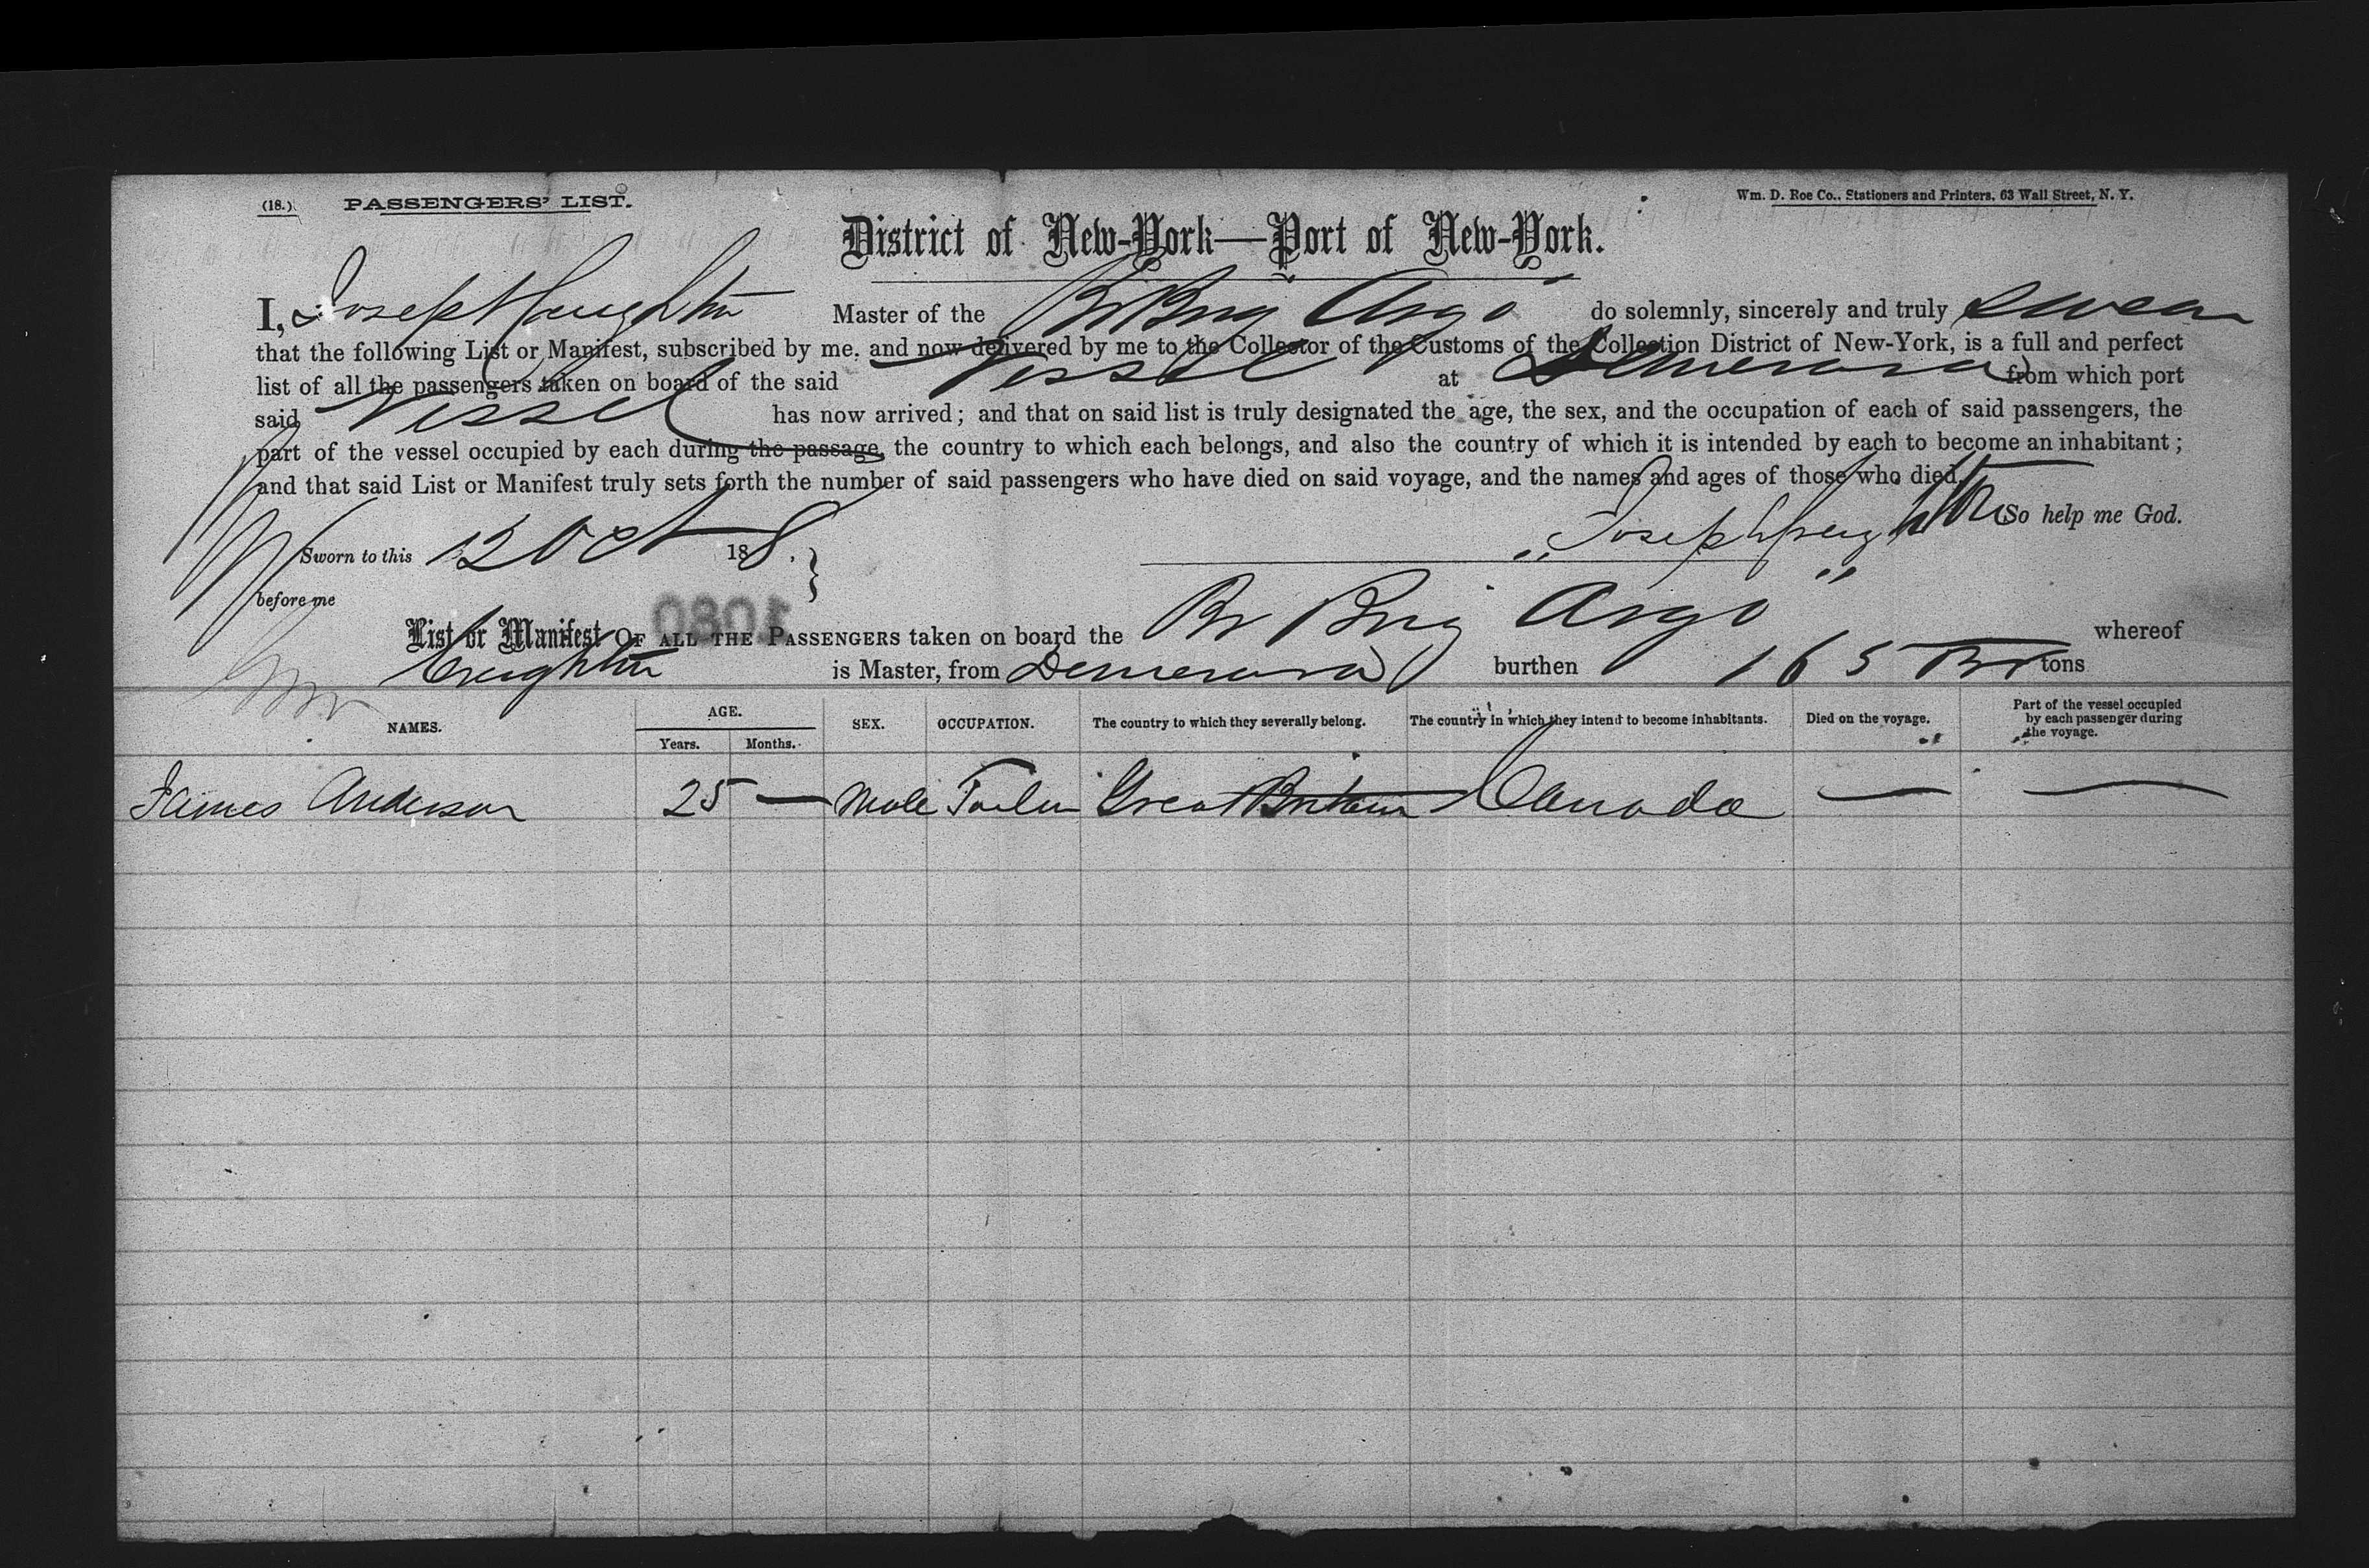 (18.) PASSENGERS' LIST. Wm. D. Roe Co., Stationers and Printers, 63 Wall Street, N. Y.
District of New-York—Port of New-York.
I, Joseph Creighton Master of the Br Brig Argo do solemnly, sincerely and truly swear
that the following List or Manifest, subscribed by me, and now delivered by me to the Collector of the Customs of the Collection District of New-York, is a full and perfect
list of all the passengers taken on board of the said Vessel at Demerara from which port
said Vessel has now arrived; and that on said list is truly designated the age, the sex, and the occupation of each of said passengers, the
part of the vessel occupied by each during the passage, the country to which each belongs, and also the country of which it is intended by each to become an inhabitant;
and that said List or Manifest truly sets forth the number of said passengers who have died on said voyage, and the names and ages of those who died.
So help me God.
Sworn to this 12 Oct 188 Joseph Creighton
before me
1080
List or Manifest OF ALL THE PASSENGERS taken on board the Br Brig "Argo" whereof
Creighton is Master, from Demerara burthen 165 tons
NAMES. AGE. Years. Months. SEX. OCCUPATION. The country to which they severally belong. The country in which they intend to become inhabitants. Died on the voyage. Part of the vessel occupied by each passenger during the voyage.
James Anderson 25 — Male Tailor Great Britain Canada — —